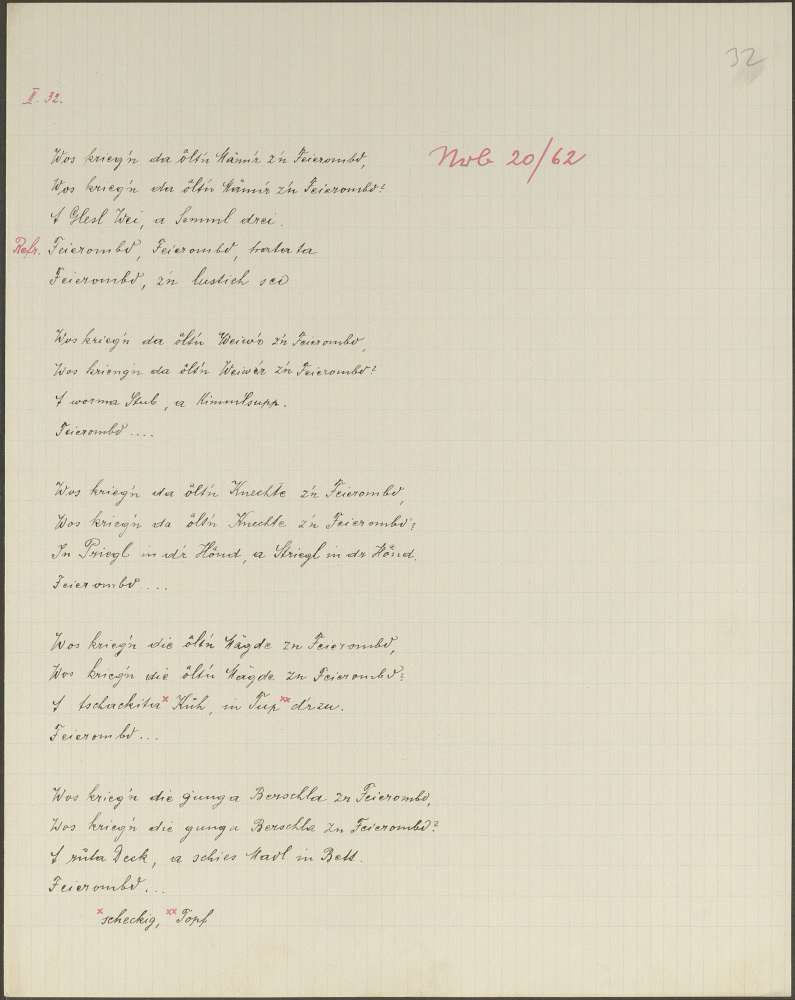 32
II. 32.
Wos krieg'n da ölt'n Männ'r z'n Feierombd,
Nrb 20/62
Wos krieg'n da ölt'n Männ'r z'n Feierombd?
A Glesl Wei, a Semml drei.
Refr. Feierombd, Feierombd, tratata
Feierombd, z'n lustich sei
Wos krieg'n da ölt'n Weiw'r z'n Feierombd,
Wos krieng'n da ölt'n Weiw'r z'n Feierombd?
A worma Stub, a Kimmlsupp.
Feierombd....
Wos krieg'n da ölt'n Knechte z'n Feierombd,
Wos krieg'n da ölt'n Knechte z'n Feierombd?
In Priegl in d'r Hönd, a Striegl in dr Hönd.
Feierombd....
Wos krieg'n die ölt'n Mägde zn Feierombd,
Wos krieg'n die ölt'n Mägde zn Feierombd?
A tschackita x Küh, in Tup xx d'rzu.
Feierombd...
Wos krieg'n die gunga Berschla zn Feierombd,
Wos krieg'n die gunga Berschla zn Feierombd?
A rüta Deck, a schies Madl in Bett.
Feierombd...
x scheckig, xx Topf